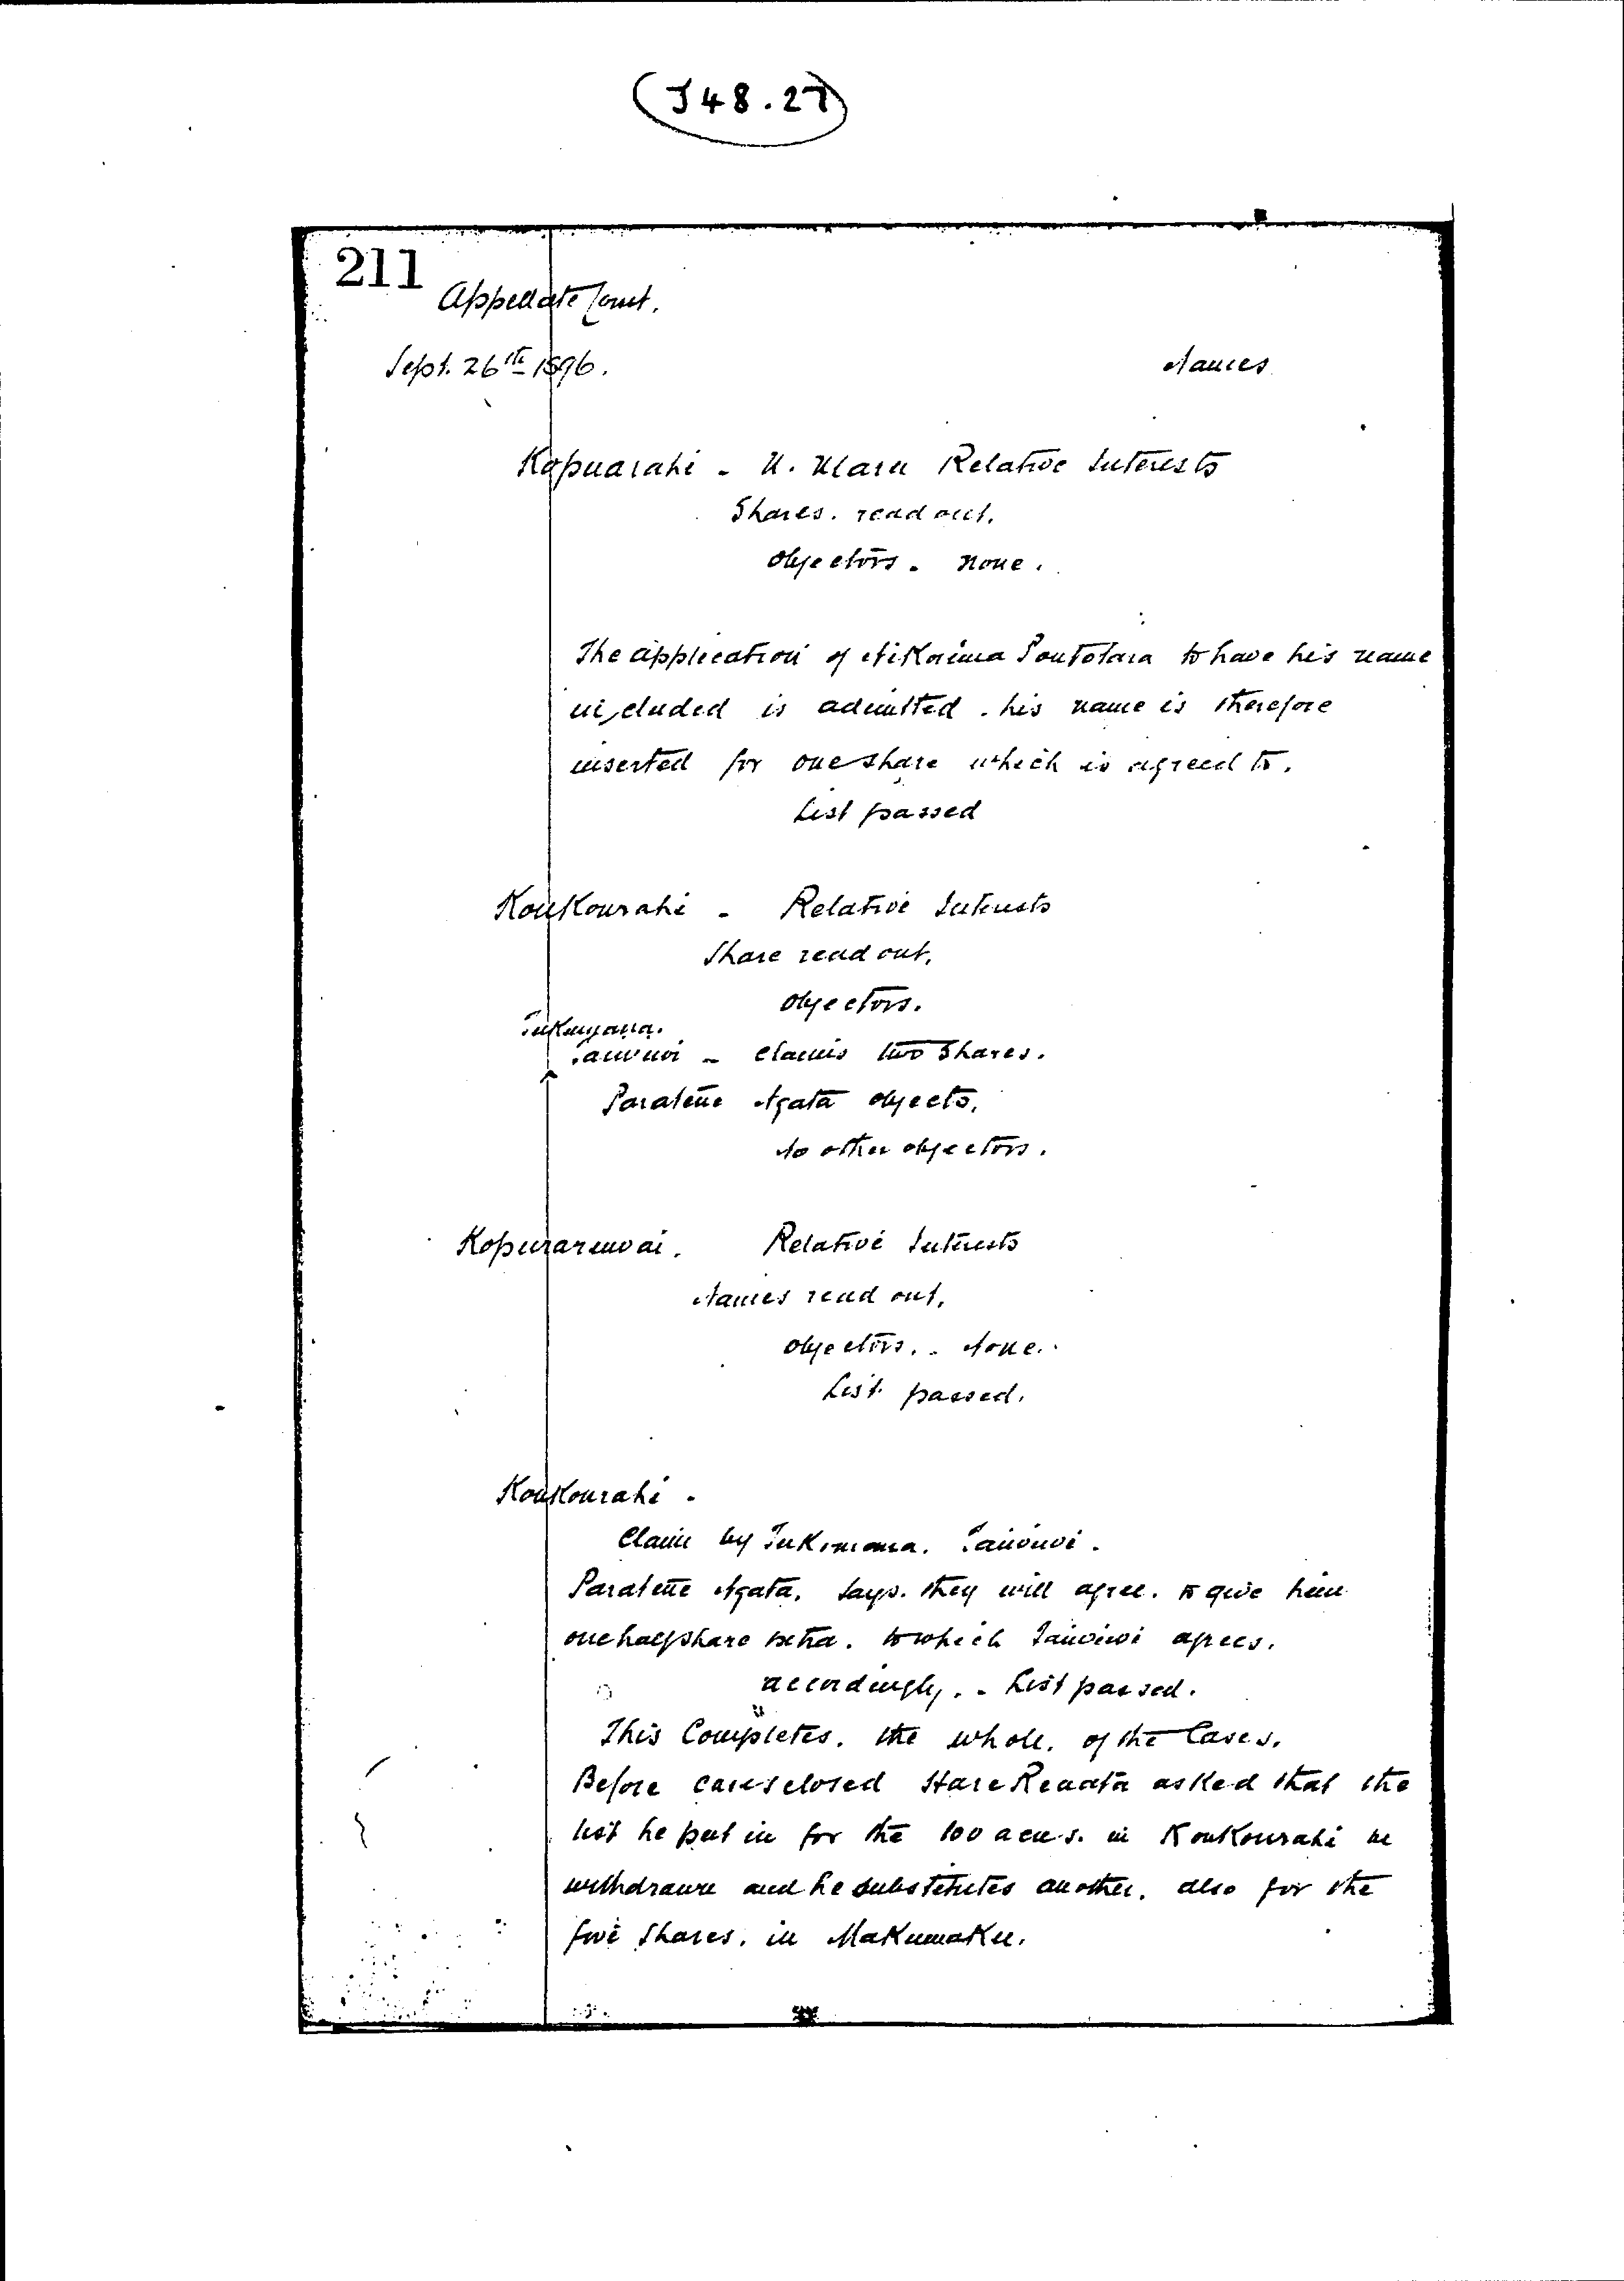 (J48.27)
211
Appellate Court.
Sept. 26th 1896.
Names
Kopuarahi - U. Ulara Relative Interests
Shares. read out.
Objectors. None.
The application of Nikorima Poutotara to have his name
included is admitted. his name is therefore
inserted for one share which is agreed to.
List passed
Koukourahi - Relative Interests
Share read out.
Objectors.
- claims two shares.
Paratene Ngata objects.
No other objectors.
Relative Interests
Names read out.
Objectors. - None.
List passed.
Koukourahi -
Claim by
Paratene Ngata. says. they will agree. to give him
one half share extra. to which agrees.
accordingly. - List passed.
This Completes. the whole. of the Cases.
Before cases closed Hare Renata asked that the
list he put in for the 100 acres. in Koukourahi be
withdrawn and he substitutes another. also for the
five shares. in Makumaku.